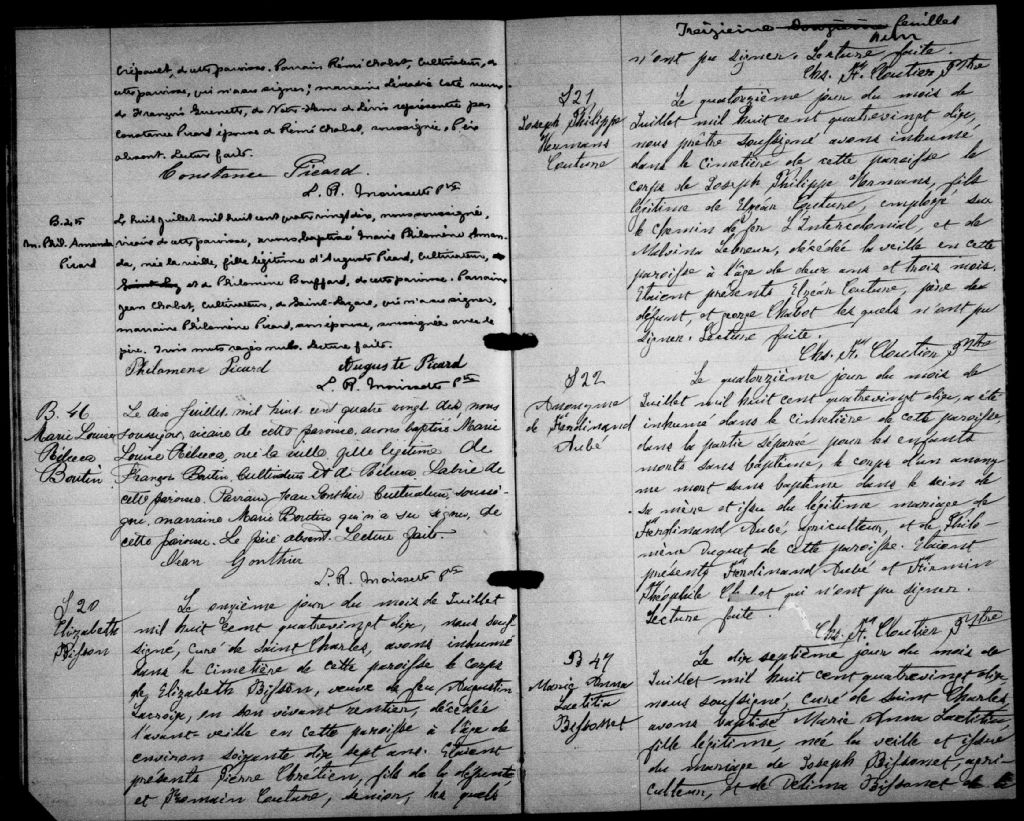 Crépault, de cette paroisse. Parrain Rémi Chabot, Cultivateur, de
cette paroisse, qui n'a su signer; marraine Léocadie Coté veuve
de François Guenette, de Notre-Dame de Lévis représentée par
Constance Picard épouse de Rémi Chabot, soussignée. Père
absent. Lecture faite.
Constance Picard.
L. R. Moissette Ptre
B. 45
M. Phil. Amanda
Picard
Le huit juillet mil huit cent quatre vingt dix, nous soussigné,
vicaire de cette paroisse, avons baptisé Marie Philomène Aman-
da, née la veille, fille légitime d'Auguste Picard, Cultivateur, de
et de Philomène Bouffard, de cette paroisse. Parrain
Jean Chabot, Cultivateur, de Saint-Lazare, qui n'a su signer,
marraine Philomène Picard, son épouse, soussignée avec le
père. Trois mots rayés nuls. Lecture faite.
Philomene Picard Auguste Picard
L. R. Moissette Ptre
B. 46
Marie Louise
Rébecca
Boutin
Le dix Juillet, mil huit cent quatre vingt dix nous
soussigné, vicaire de cette paroisse, avons baptisé Marie
Louise Rébecca, née la veille, fille légitime de
François Boutin, Cultivateur et de Rébecca Labrie de
cette paroisse. Parrain Jean Gonthier Cultivateur, soussi-
gné, marraine Marie Boutin qui n'a su signer, de
cette paroisse. Le père absent. Lecture faite.
Jean Gonthier
L. R. Moissette Ptre
S 20
Elizabeth
Bisson
Le onzième jour du mois de Juillet
mil huit cent quatrevingt dix, nous sous-
signé, curé de Saint Charles, avons inhumé
dans le cimetière de cette paroisse le corps
de Elizabeth Bisson, veuve de feu Augustin
Lacroix, en son vivant rentier, décédée
l'avant veille en cette paroisse à l'âge de
environ soixante dix sept ans. Etaient
présents Pierre Chrétien, fils de la défunte,
et Romain Couture, senior, les quels
Treizieme Douzieme feuillet
n'ont pu signer. Lecture faite.
Chs. A. Cloutier Ptre
S 21
Joseph Philippe
Hermans
Couture
Le quatorzième jour du mois de
Juillet mil huit cent quatrevingt dix,
nous prêtre soussigné avons inhumé
dans le cimetière de cette paroisse le
corps de Joseph Philippe Hermans, fils
légitime de Elzéar Couture, employé sur
le chemin de fer L'Intercolonial, et de
Malvina Lebreux, décédée la veille en cette
paroisse à l'âge de deux ans et trois mois.
Etaient présents Elzéar Couture, père du
défunt, et george Chabot les quels n'ont pu
signer. Lecture faite.
Chs. A. Cloutier Ptre
S 22
Anonyme
de Ferdinand
Aubé
Le quatorzième jour du mois de
Juillet mil huit cent quatrevingt dix, a été
inhumé dans le cimetière de cette paroisse,
dans la partie séparée pour les enfants
morts sans baptême, le corps d'un anony-
me mort sans baptême dans le sein de
sa mère et issu du légitime mariage de
Ferdinand Aubé, agriculteur, et de Philo-
mène Duquet de cette paroisse. Etaient
présents Ferdinand Aubé et Firmin
Théophile Chabot qui n'ont pu signer.
Lecture faite.
Chs. A. Cloutier Ptre
B 47
Marie Anna
Laetitia
Bissonet
Le dix septième jour du mois de
Juillet mil huit cent quatrevingt dix
nous soussigné, curé de Saint Charles,
avons baptisé Marie Anna Laetitia
fille légitime, née la veille et issue
du mariage de Joseph Bissonet, agri-
culteur, et de Délima Bissonet de la